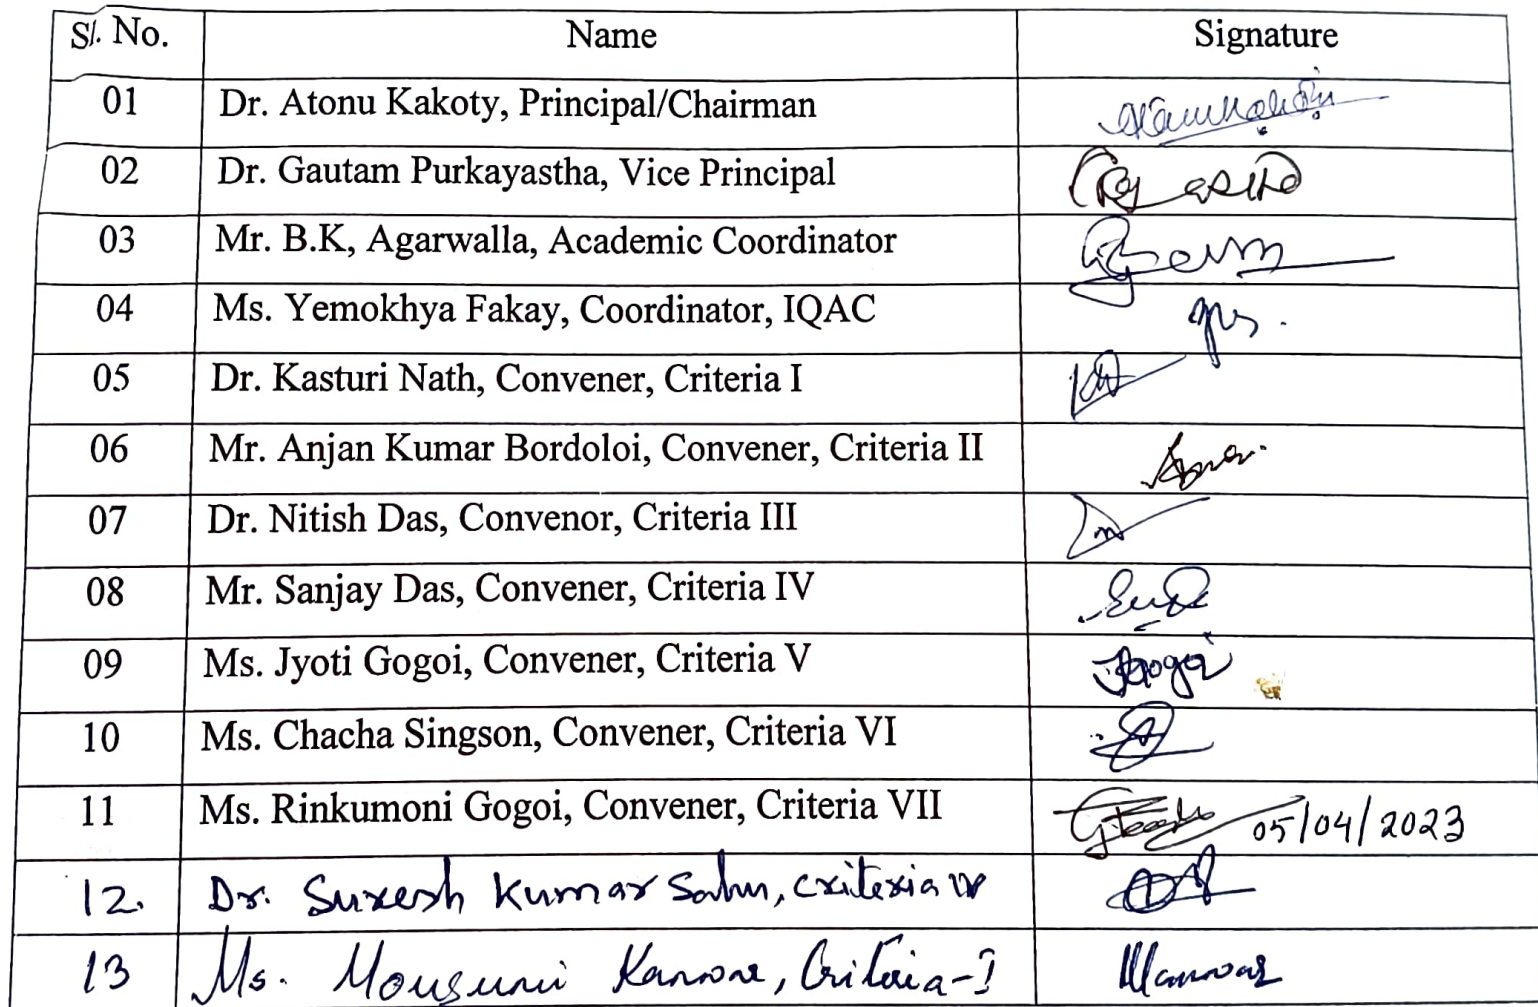 Sl. No. Name Signature
01 Dr. Atonu Kakoty, Principal/Chairman
02 Dr. Gautam Purkayastha, Vice Principal
03 Mr. B.K, Agarwalla, Academic Coordinator
04 Ms. Yemokhya Fakay, Coordinator, IQAC
05 Dr. Kasturi Nath, Convener, Criteria I
06 Mr. Anjan Kumar Bordoloi, Convener, Criteria II
07 Dr. Nitish Das, Convenor, Criteria III
08 Mr. Sanjay Das, Convener, Criteria IV
09 Ms. Jyoti Gogoi, Convener, Criteria V JGogoi
10 Ms. Chacha Singson, Convener, Criteria VI
11 Ms. Rinkumoni Gogoi, Convener, Criteria VII 05/04/2023
12. Dr. Suresh Kumar Sahu, criteria IV
13 Ms. Mousumi Kanwar, Criteria-I